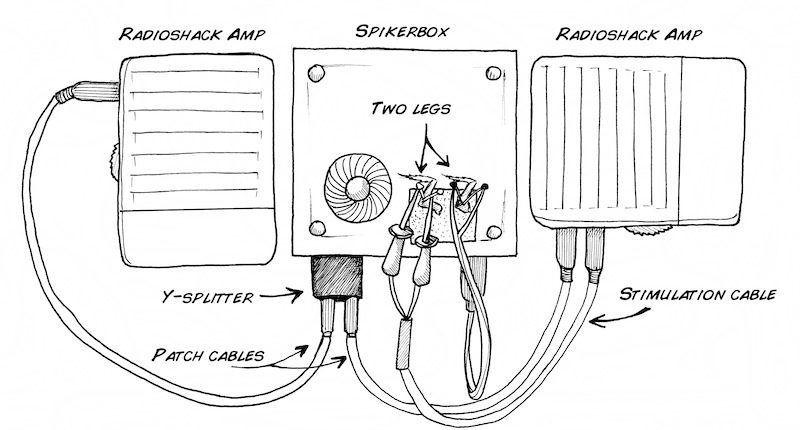 RADIOSHACK AMP
SPIKERBOX
RADIOSHACK AMP
TWO LEGS
Y-SPLITTER
STIMULATION CABLE
PATCH CABLES